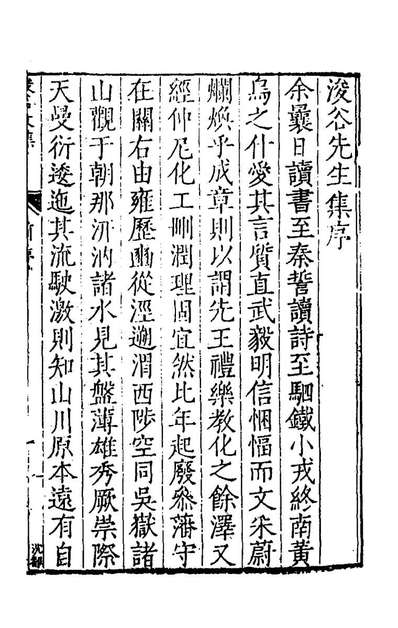 浚谷先生集序
余曩日讀書至秦誓讀詩至駟鐵小戎終南黃
鳥之什愛其言質直武毅明信悃愊而文采蔚
爛煥乎成章則以謂先王禮樂教化之餘澤又
經仲尼化工刪潤理固宜然比年起廢叅藩守
在關右由雍歷豳從涇遡渭西陟空同吳嶽諸
山觀于朝那汧汭諸水見其盤薄雄秀厥崇際
天曼衍逶迤其流駛激則知山川原本遠有自